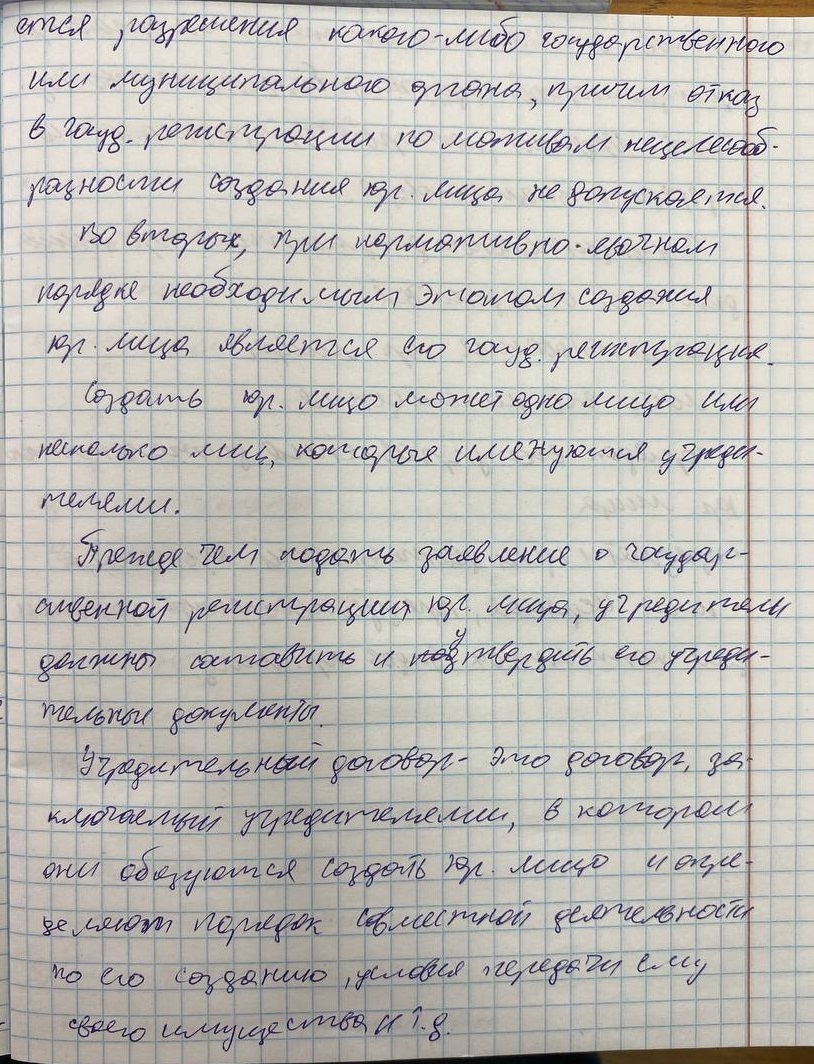 ется разрешения какого-либо государственного
или муниципального органа, причем отказ
в госуд. регистрации по мотивам нецелесооб-
разности создания юр. лица не допускается.
Во вторых, при нормативно-явочном
порядке необходимым этапом создания
юр. лица является его госуд. регистрация.
Создать юр. лицо может одно лицо или
несколько лиц, которые именуются учреди-
телями.
Прежде чем подать заявление о государ-
ственной регистрации юр. лица, учредители
должны составить и утвердить его учреди-
тельные документы.
Учредительный договор - это договор, за-
ключаемый учредителями, в котором
они обязуются создать юр. лицо и опре-
деляют порядок совместной деятельности
по его созданию, условия передачи ему
своего имущества и т.д.